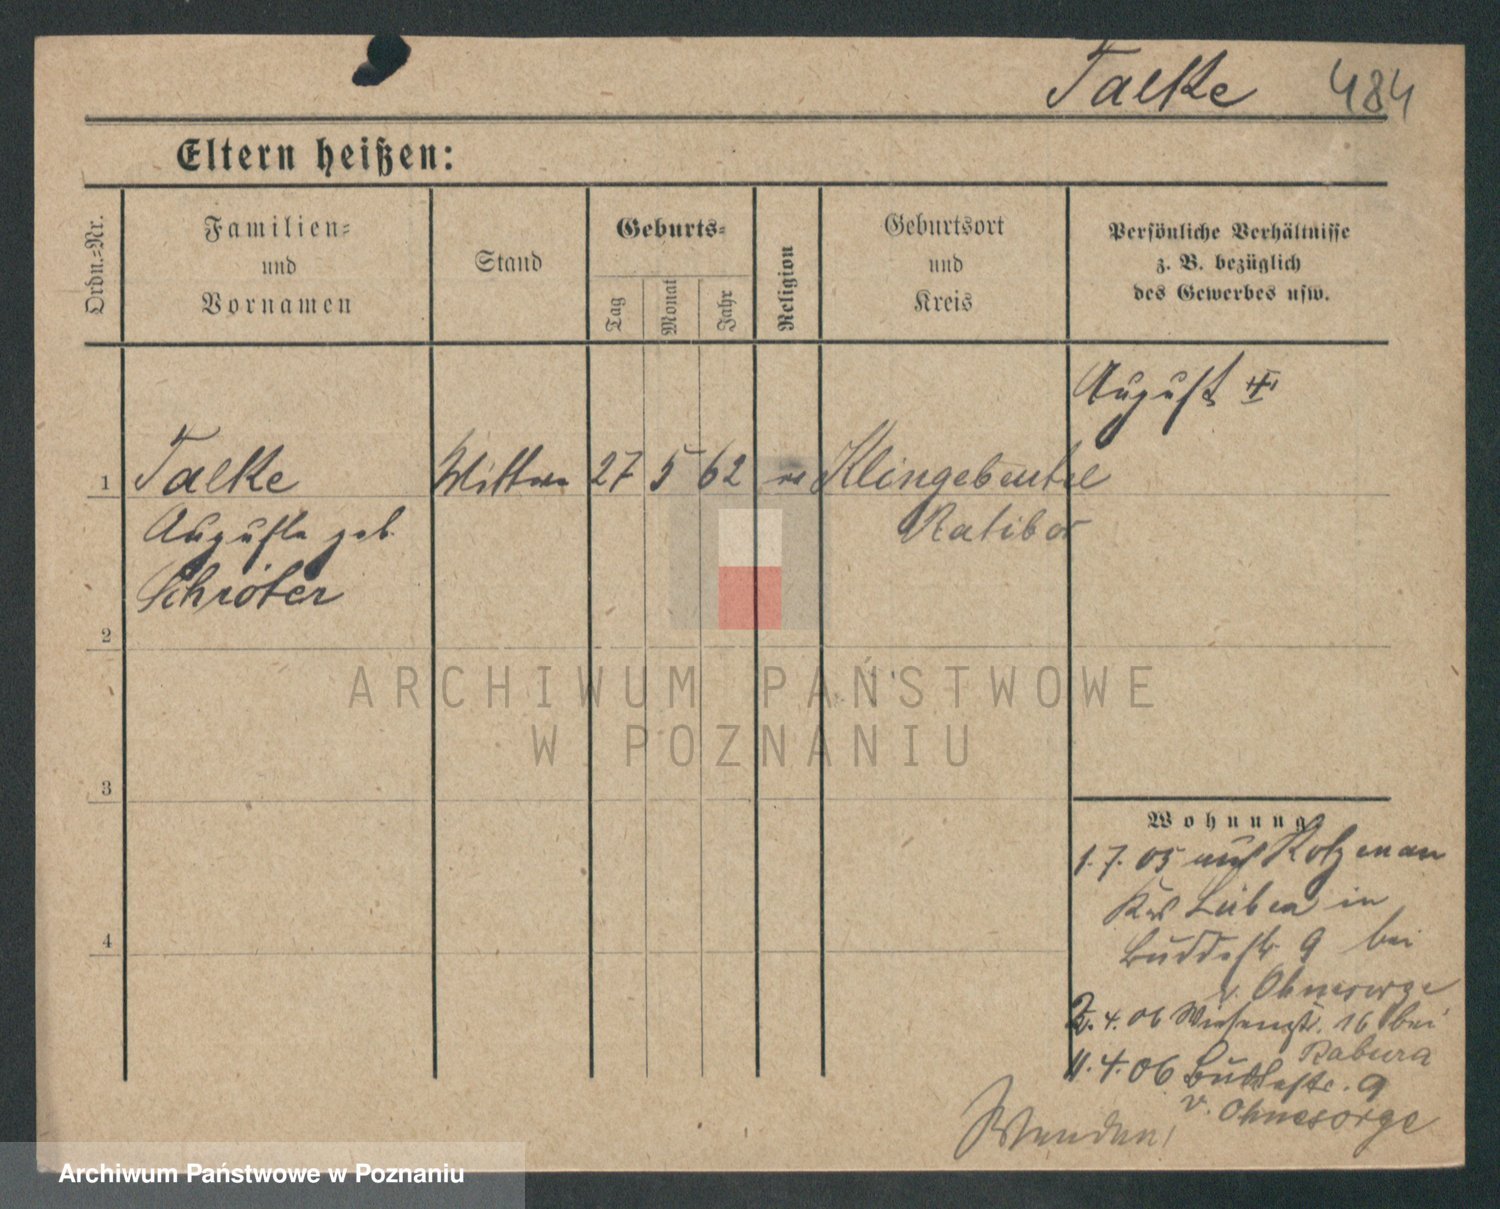 Talke 484
Eltern heißen:
Ordn.-Nr.
Familien-
und
Vornamen
Stand
Geburts-
Tag
Monat
Jahr
Religion
Geburtsort
und
Kreis
Persönliche Verhältnisse
z. B. bezüglich
des Gewerbes usw.
August II
1 Talke Wittwe 27 5 62 Klingebeutel
Auguste geb. Ratibor
Schröter
2
3
4
ARCHIWUM PAŃSTWOWE
W POZNANIU
Wohnung
1.7.05 aus Kotzenau
Krs Lüben in
Buddestr 9 bei
v. Ohnesorge
2.4.06 Wiesenstr. 16 bei
Rabura
11.4.06 Buddestr. 9
v. Ohnesorge
Wenden!
Archiwum Państwowe w Poznaniu